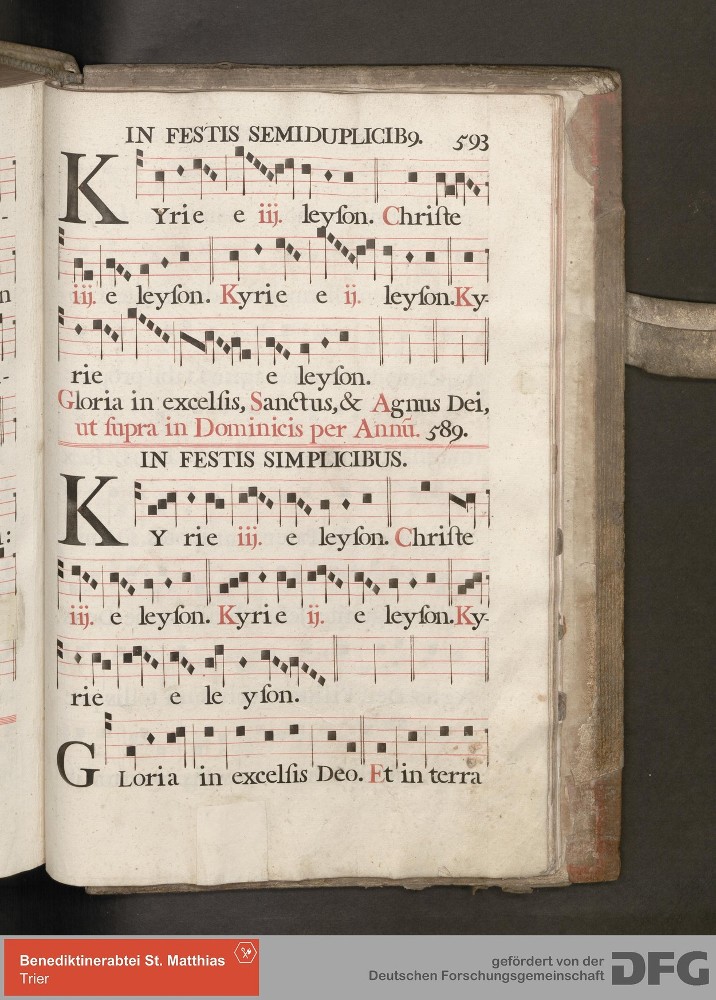 IN FESTIS SEMIDUPLICIB9. 593
KYrie e iij. leyſon. Chriſte
iij. e leyſon. Kyrie e ij. leyſon. Ky-
rie e leyſon.
Gloria in excelſis, Sanctus, & Agnus Dei,
ut ſupra in Dominicis per Annū. 589.
IN FESTIS SIMPLICIBUS.
KY rie iij. e leyſon. Chriſte
iij. e leyſon. Kyrie ij. e leyſon. Ky-
rie e le yſon.
GLoria in excelſis Deo. Et in terra
Benediktinerabtei St. Matthias
Trier
gefördert von der
Deutschen Forschungsgemeinschaft DFG